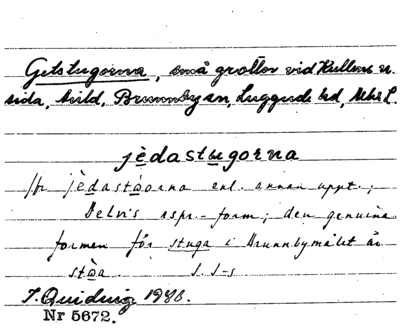 Getstugorna, små grottor vid Kullens n.
sida, Arild, Brunnby sn, Luggude hd, Mhs L.
jèdastugorna
jèdastòorna enl. annan uppt.;
Delvis rspr.-form; den genuina
formen för stuga i Brunnbymålet är
stòa. S. I-s
T. Quiding 1986.
Nr 5672.